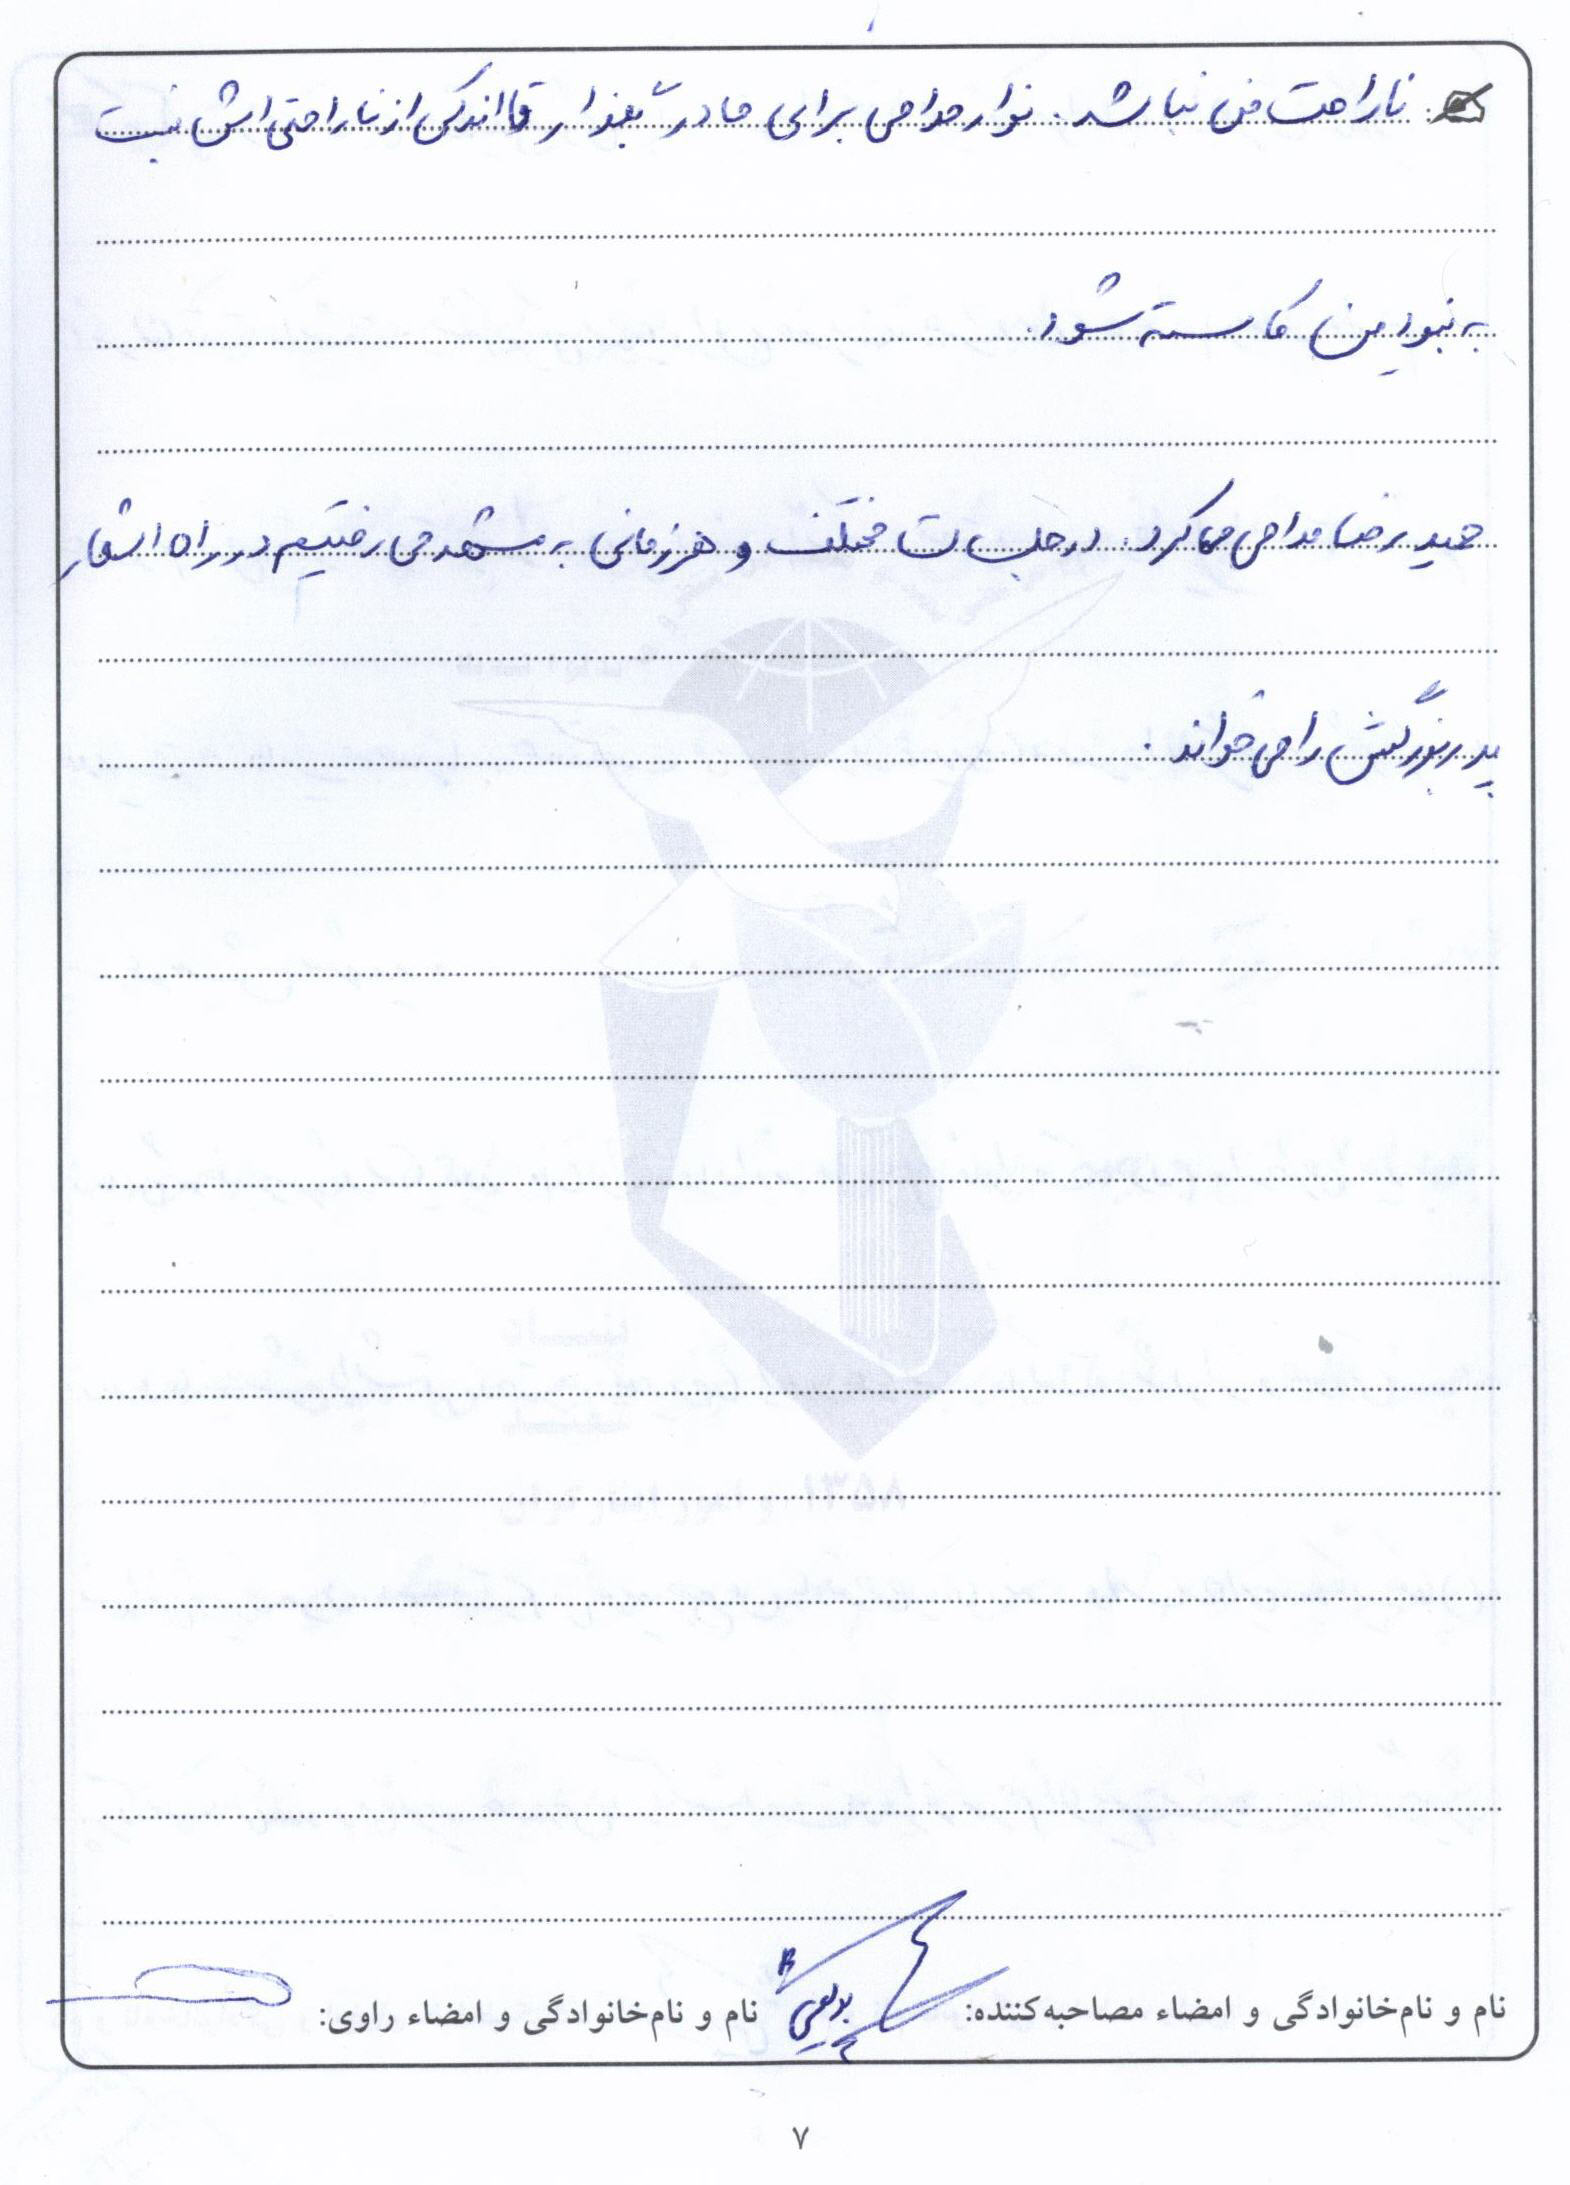 ناراحت من نباشد. نوار مداحی برای مادر بگذار تا اندکی از ناراحتی اش نسبت
به نبود من کاسته شود.
حمید رضا مداحی می کرد. در جلسات مختلف و هر زمانی به مشهد می رفتیم در راه اشعار
پدر بزرگش را می خواند.
۱۳۵۸
نام و نام‌خانوادگی و امضاء مصاحبه‌کننده: نام و نام‌خانوادگی و امضاء راوی:
۷